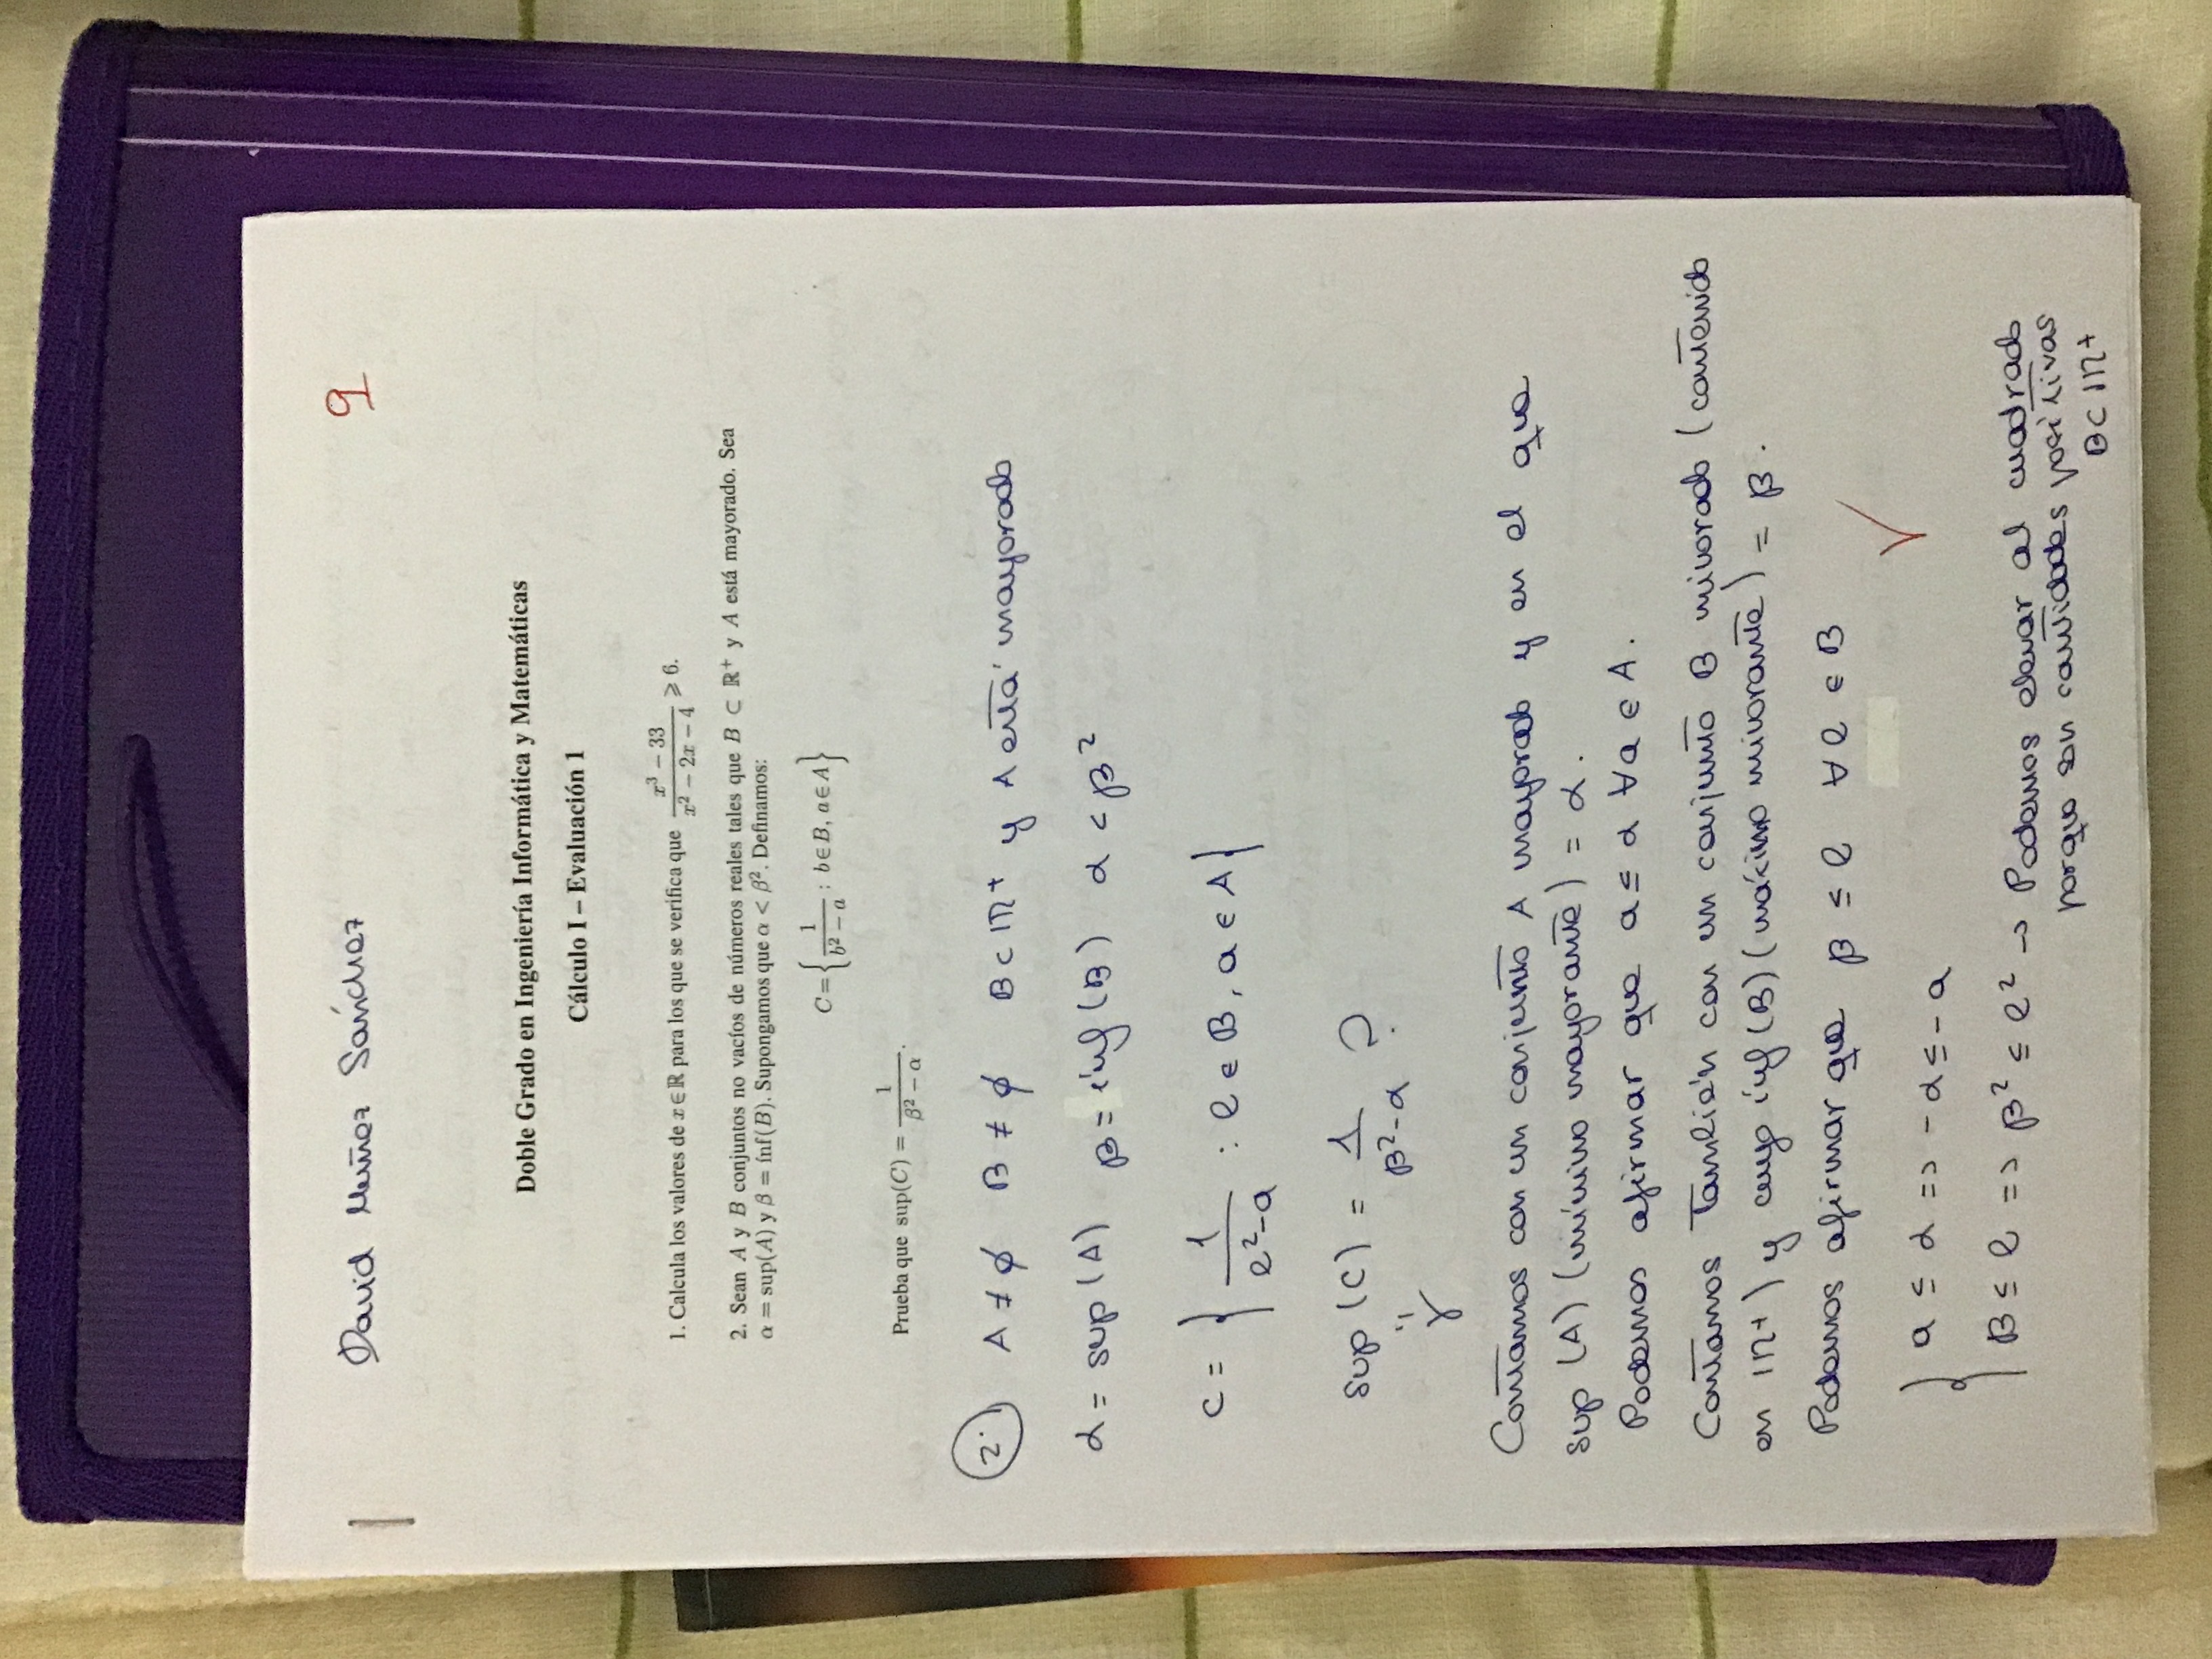 David Muñoz Sánchez
9
Doble Grado en Ingeniería Informática y Matemáticas
Cálculo I – Evaluación 1
1. Calcula los valores de x ∈ ℝ para los que se verifica que (x³ − 33)/(x² − 2x − 4) ⩾ 6.
2. Sean A y B conjuntos no vacíos de números reales tales que B ⊂ ℝ⁺ y A está mayorado. Sea
α = sup(A) y β = ínf(B). Supongamos que α < β². Definamos:
C = { 1/(b² − a) : b ∈ B, a ∈ A }
Prueba que sup(C) = 1/(β² − α).
2.) A ≠ ∅ B ≠ ∅ B ⊂ ℝ⁺ y A está mayorado
α = sup(A) β = ínf(B) α < β²
C = { 1/(b² − a) : b ∈ B, a ∈ A }
sup(C) = 1/(β² − α) ?
"
γ
Contamos con un conjunto A mayorado y en el que
sup (A) (mínimo mayorante) = α.
Podemos afirmar que a ≤ α ∀a ∈ A.
Contamos también con un conjunto B minorado (contenido
en ℝ⁺) y cuyo ínf(B) (máximo minorante) = β.
Podemos afirmar que β ≤ b ∀b ∈ B
√
{ a ≤ α => -α ≤ -a
β ≤ b => β² ≤ b² → Podemos elevar al cuadrado
porque son cantidades positivas
B ⊂ ℝ⁺